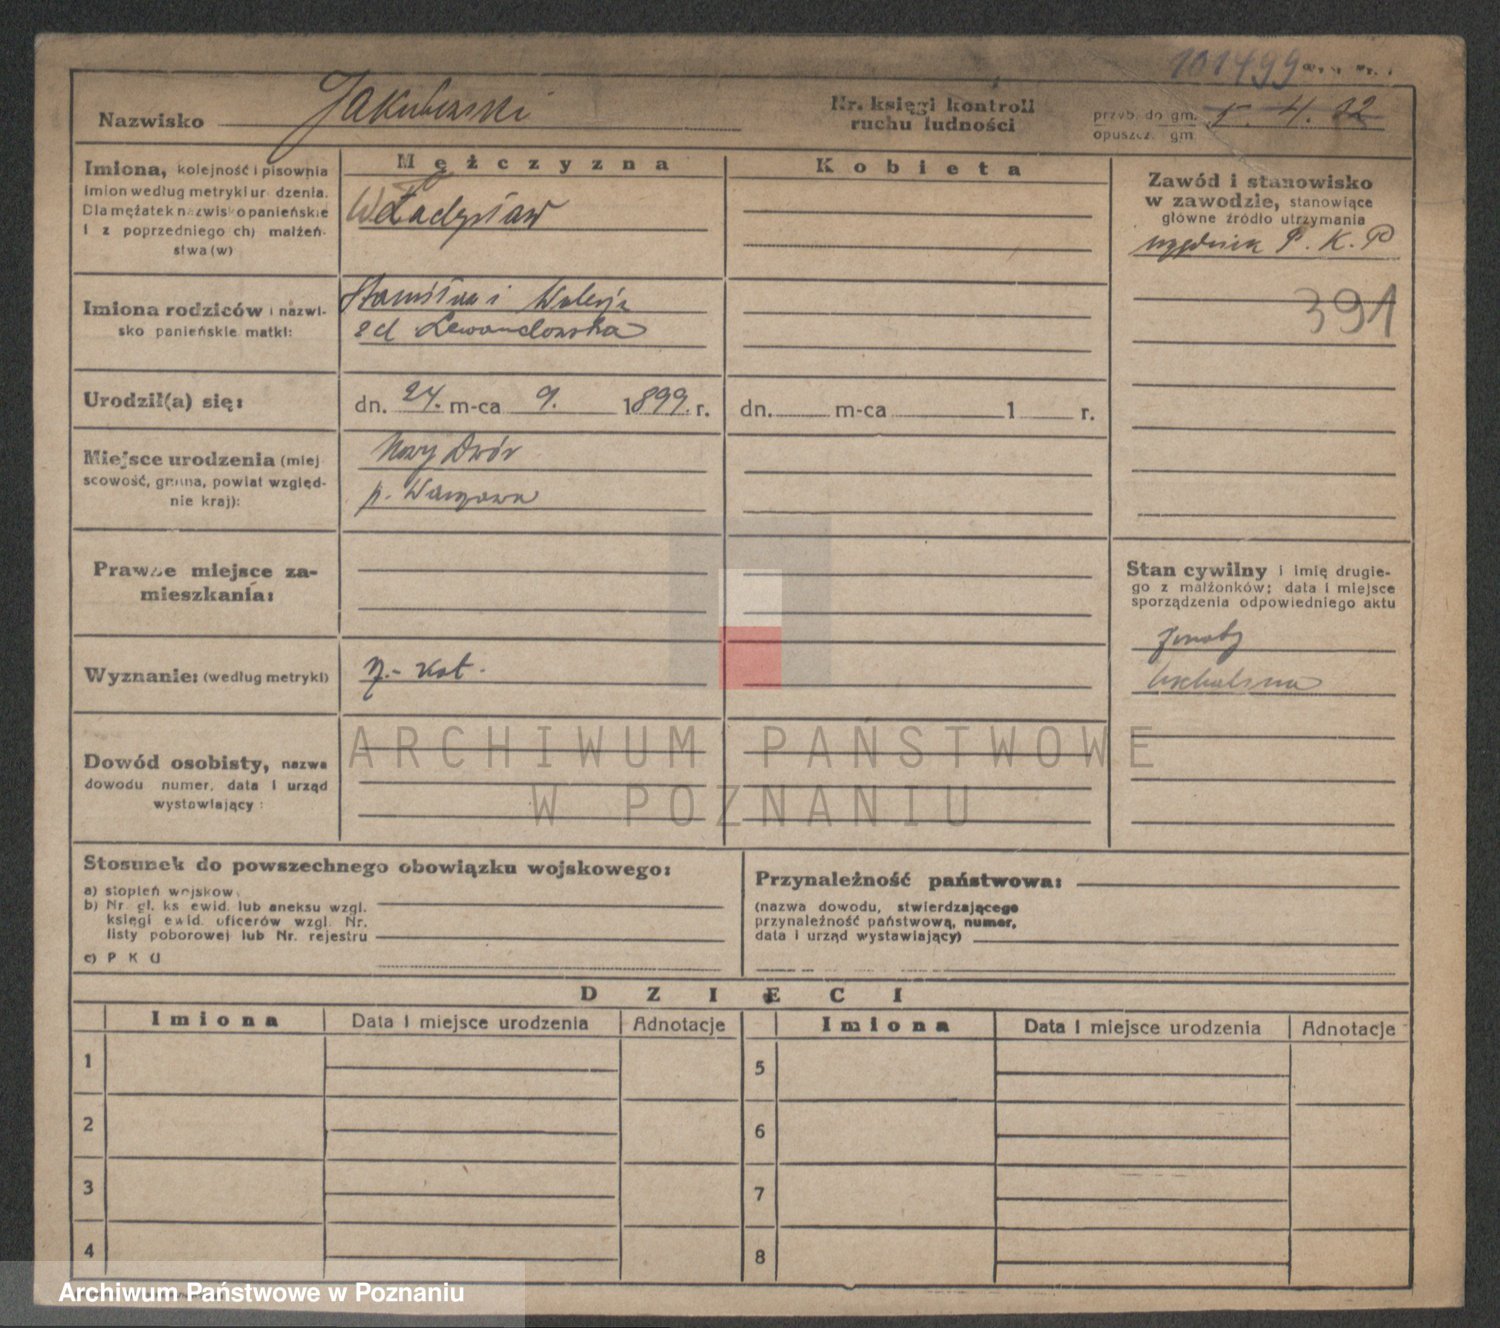 101499
Nazwisko
Nr. księgi kontroli
ruchu ludności
przyb. do gm.
opuszcz. gm.
5. 4. 32
Imiona, kolejność i pisownia
imion według metryki urodzenia.
Dla mężatek nazwisko panieńskie
i z poprzedniego ch) małżeń-
stwa (w)
Mężczyzna
Władysław
Kobieta
Zawód i stanowisko
w zawodzie, stanowiące
główne źródło utrzymania
P. K. P
391
Imiona rodziców i nazwi-
sko panieńskie matki:
Stanisław i Walerja
Lewandowska
Urodził(a) się:
dn. 24. m-ca 9. 1899. r.
dn. m-ca 1 r.
Miejsce urodzenia (miej
scowość, gmina, powiat względ-
nie kraj):
Nowy Dwór
p.
Prawne miejsce za-
mieszkania:
Stan cywilny i imię drugie-
go z małżonków; data i miejsce
sporządzenia odpowiedniego aktu
żonaty
Wyznanie: (według metryki)
rz.- kat.
Dowód osobisty, nazwa
dowodu numer, data i urząd
wystawiający:
ARCHIWUM PAŃSTWOWE
W POZNANIU
Stosunek do powszechnego obowiązku wojskowego:
a) stopień wojskow.
b) Nr gł. ks ewid. lub aneksu wzgl.
księgi ewid. oficerów wzgl. Nr.
listy poborowej lub Nr. rejestru
c) P K U
Przynależność państwowa:
(nazwa dowodu, stwierdzającego
przynależność państwową, numer,
data i urząd wystawiający)
DZIECI
Imiona Data i miejsce urodzenia Adnotacje Imiona Data i miejsce urodzenia Adnotacje
1 5
2 6
3 7
4 8
Archiwum Państwowe w Poznaniu